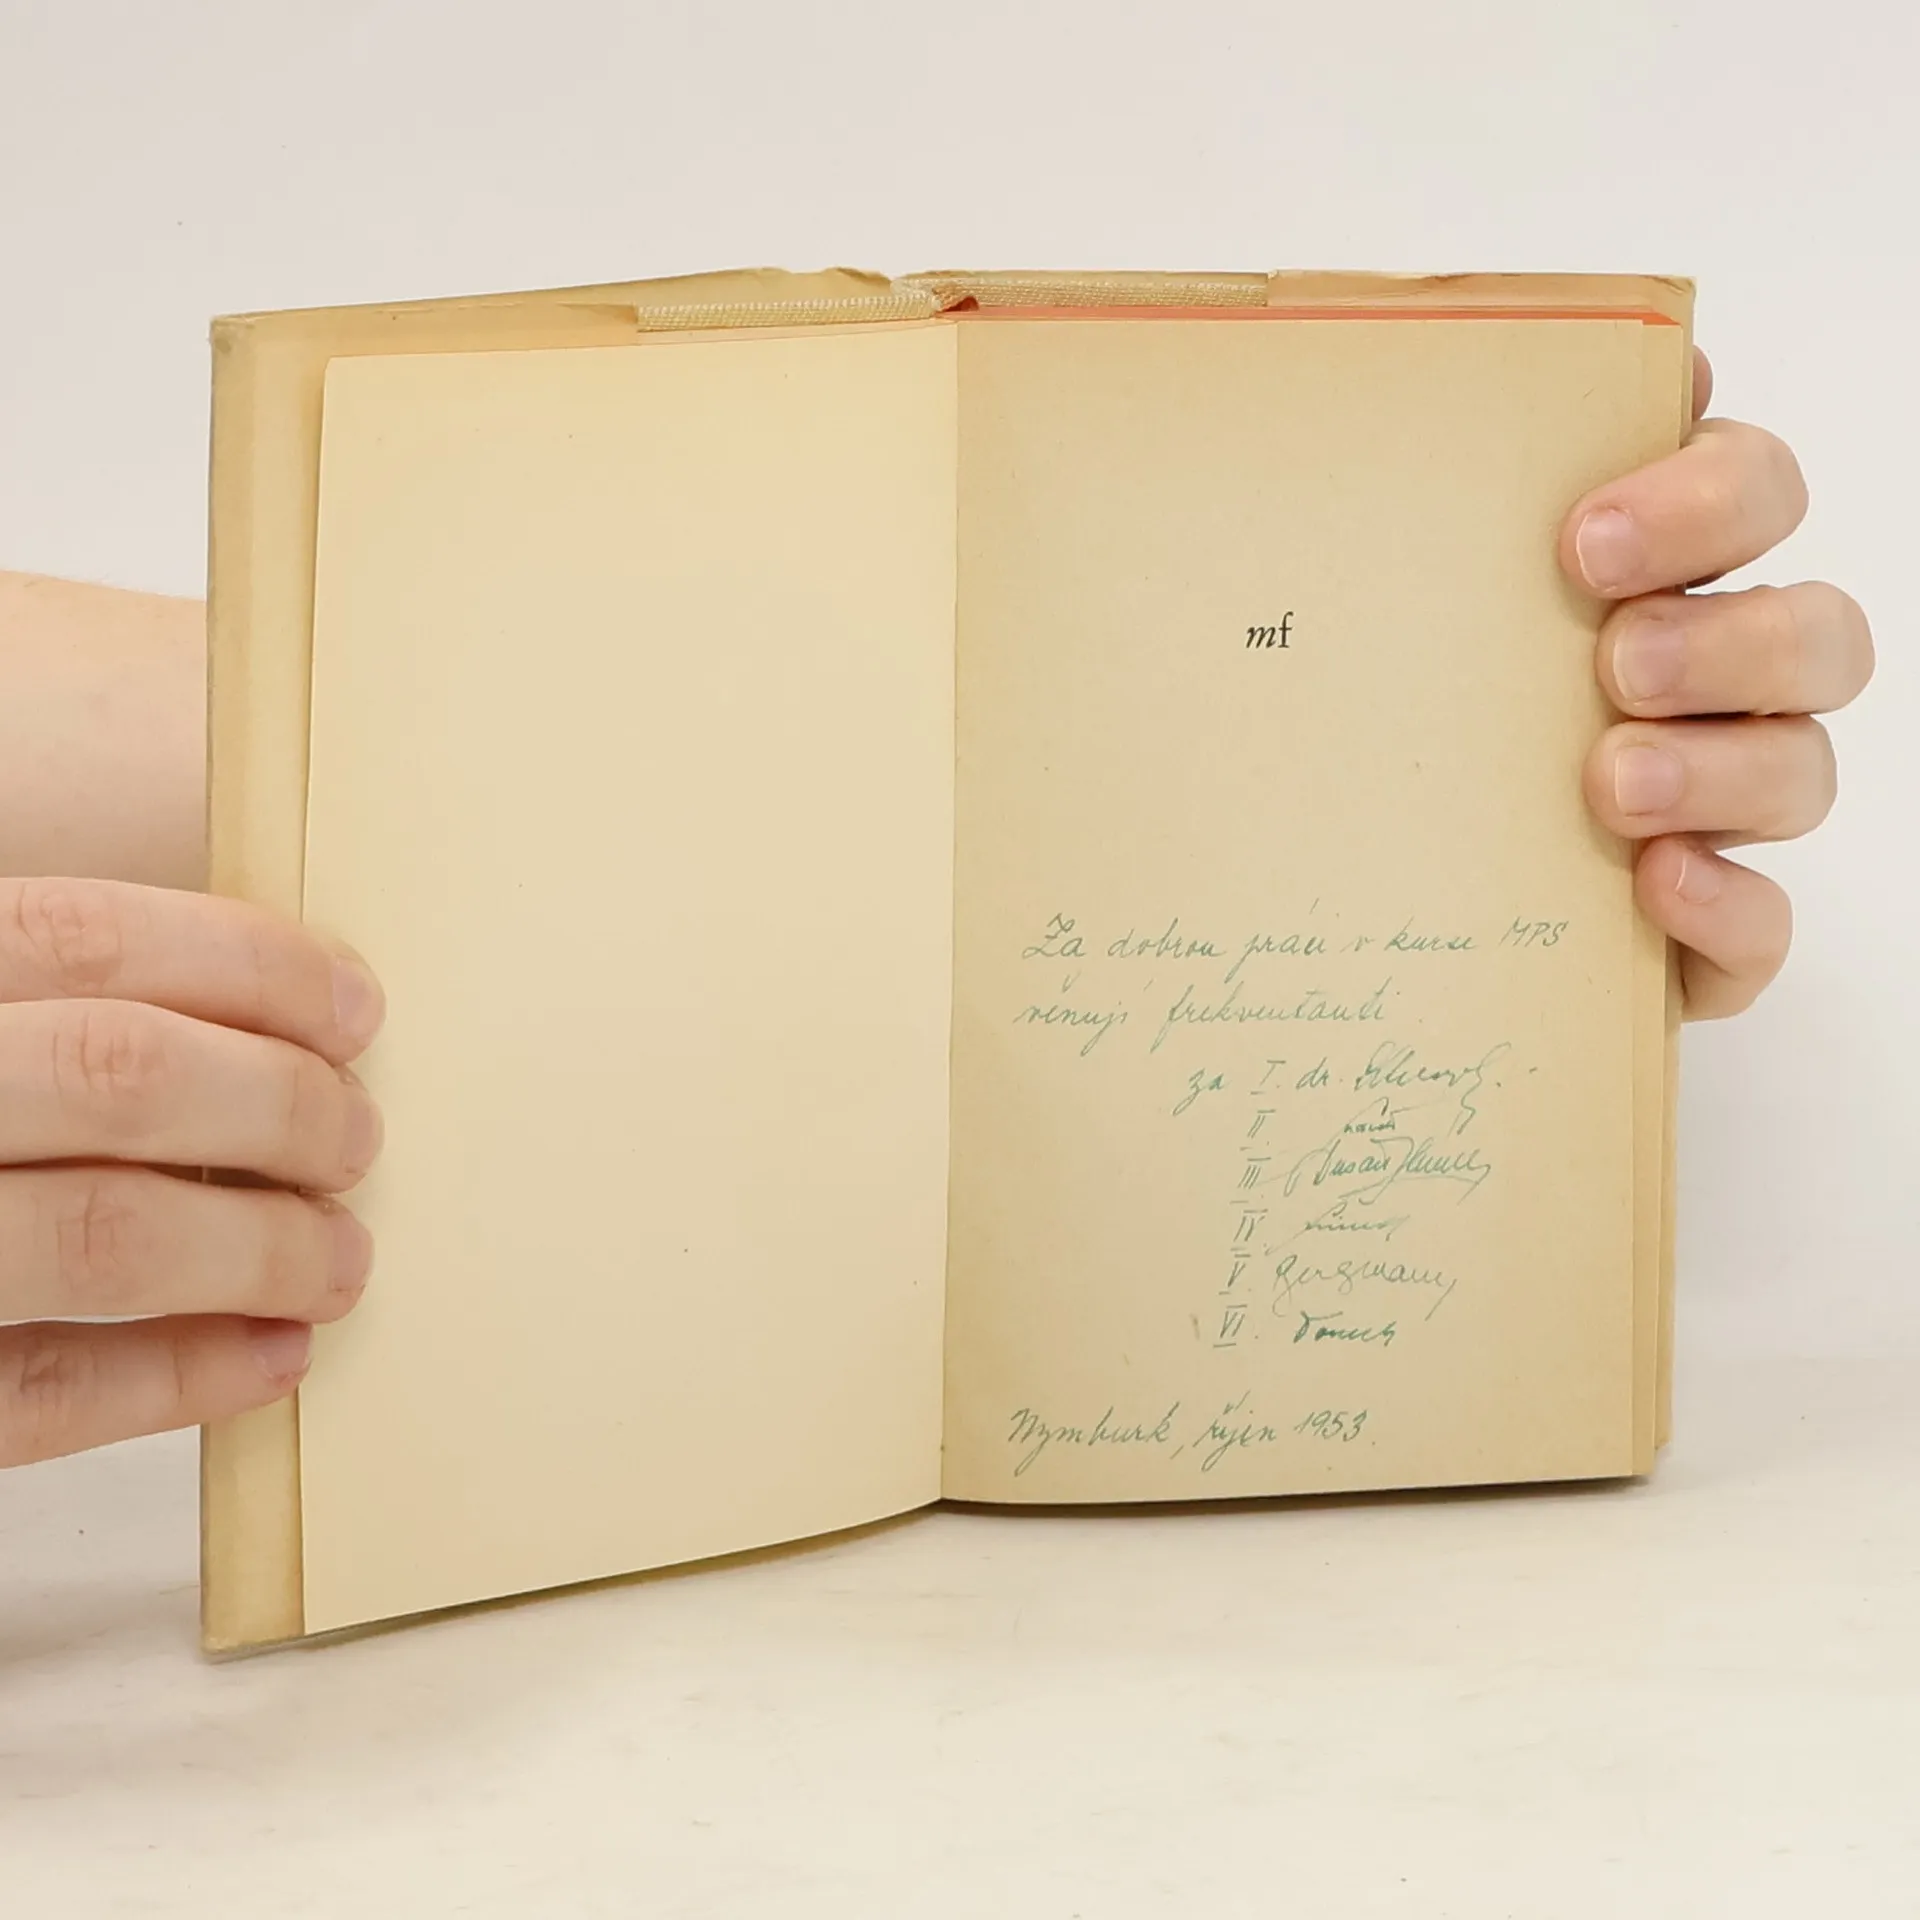 mf
Za dobrou práci v kurse MPS
věnují frekventanti
za I. dr.
II.
III.
IV.
V. Bergmann
VI.
Nymburk, říjen 1953.